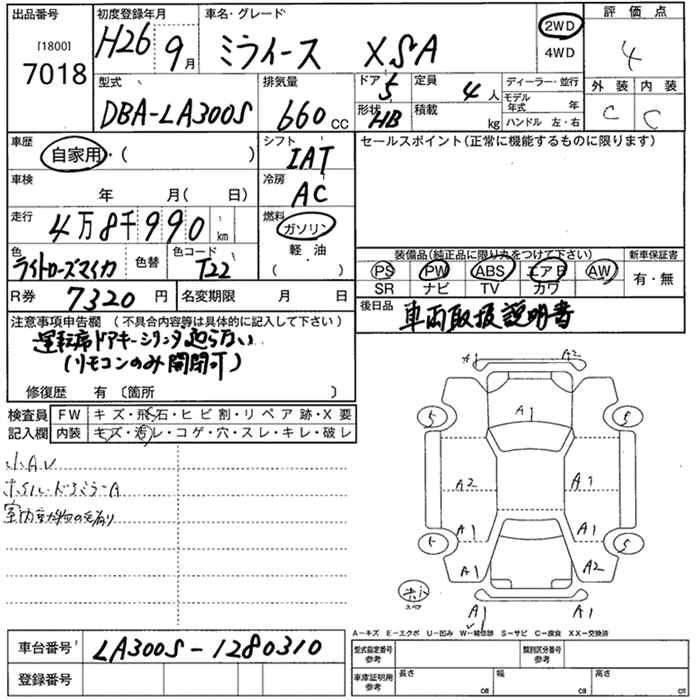 出品番号 初度登録年月 車名・グレード 評価点
[1800]
7018
H26 9月
ミライース XSA
2WD
4WD
4
型式 排気量 ドア 定員 ディーラー・並行 外装 内装
DBA-LA300S 660cc 5 4人
モデル年式 年
形状 HB 積載 kg ハンドル 左・右
C C
車歴 シフト セールスポイント(正常に機能するものに限ります)
自家用・( ) IAT
車検 年 月( 日) 冷房 AC
走行 4万8千990km 燃料 ガソリン
軽・油
( ・ )
色 ライトローズマイカ 色替 色コード T22
装備品(純正品に限り丸をつけて下さい) 新車保証書
PS PW ABS エアB AW
SR ナビ TV カワ
有・無
R券 7320円 名変期限 月 日
後日品 車両取扱説明書
注意事項申告欄 (不具合内容等は具体的に記入して下さい)
運転席ドアキーシリンダ廻らない
(リモコンのみ開閉可)
修復歴 有 〔箇所 〕
検査員 FW キズ・飛石・ヒビ割・リペア跡・X要
記入欄 内装 キズ・汚レ・コゲ・穴・スレ・キレ・破レ
小AU
ホイル・ドミラーA
A2
A1
5 5
A2 A1
A1 A1
5 5
A1 A2
スペア
A1 A1
A-キズ E-エクボ U-凹み W-補修跡 S-サビ C-腐食 XX-交換済
車台番号 LA300S-1280310
登録番号
型式指定番号 参考 類別区分番号 参考
車庫証明用 参考 長さ cm 幅 cm 高さ cm